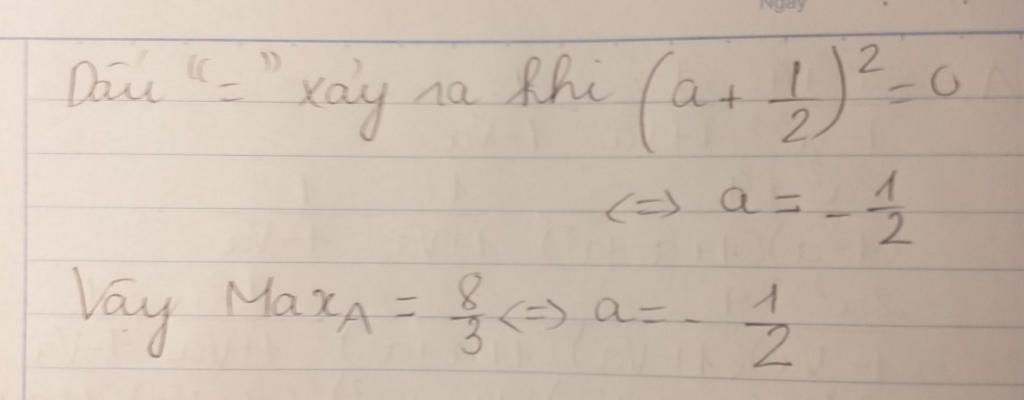 Ngày
Dấu "=" xảy ra khi (a + 1/2)² = 0
<=> a = - 1/2
Vậy Max_A = 8/3 <=> a = - 1/2